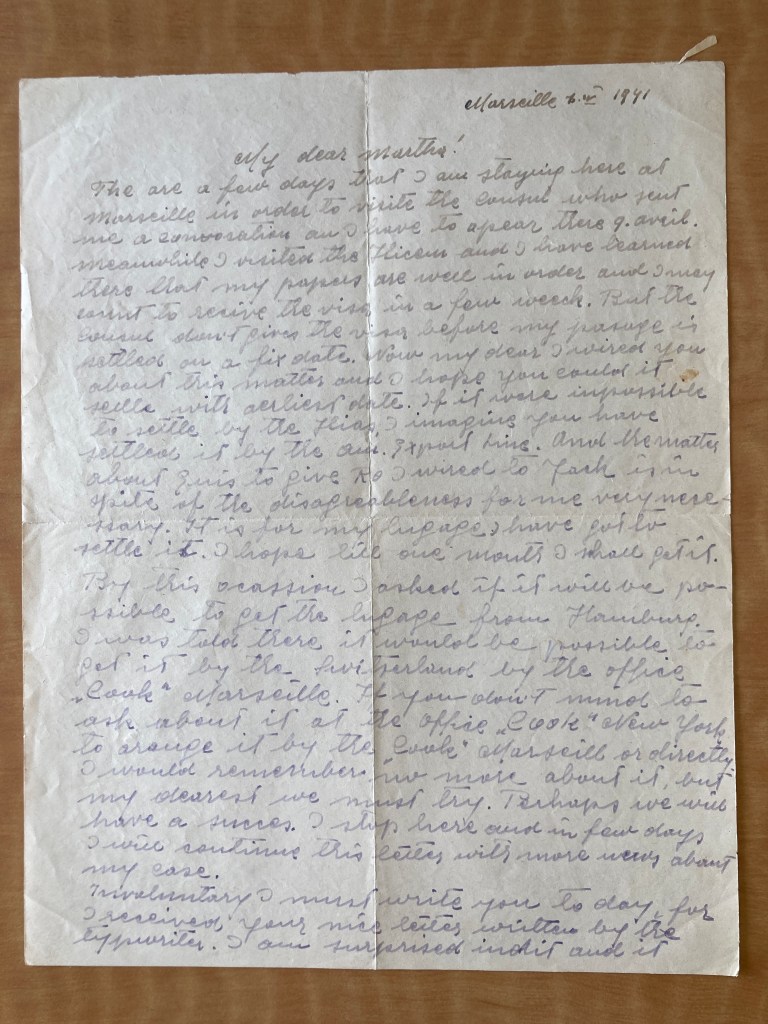 Marseille 6.IV 1941
My dear Martha!
The are a few days that I am staying here at
Marseille in order to visite the Consul who sent
me a convosation an I have to apear there 9. avril.
Meanwhile I visited the Hicem and I have learned
there that my papers are well in order and I may
count to recive the visa in a few weeck. But the
Consul don't gives the visa before my pasage is
settled on a fix date. Now my dear I wired you
about this matter and I hope you could it
settle with aerliest date. If it were inpossible
to settle by the Hias, I imagine you have
settled it by the am. Export Line. And the matter
about to give I wired to Jack is in
spite of the disagreableness for me very nece-
ssary. It is for my lugage, I have got to
settle it. I hope till one month I shall get it.
By this ocassion I asked if it will be po-
ssible to get the lugage from Hamburg.
I was told there it would be possible to
get it by the Switserland by the office
„Cook“ Marseille. If you don't mind to
ask about it at the office „Cook“ New York
to arange it by the „Cook“ Marseill or directly.
I would remember no more about it, but
my dearest we must try. Perhaps we will
have a succes. I stop here and in few days
I will continue this letter with more news about
my case.
Involuntary I must write you to day, for
I received your nice letter written by the
typwriter. I am surprised indit and it